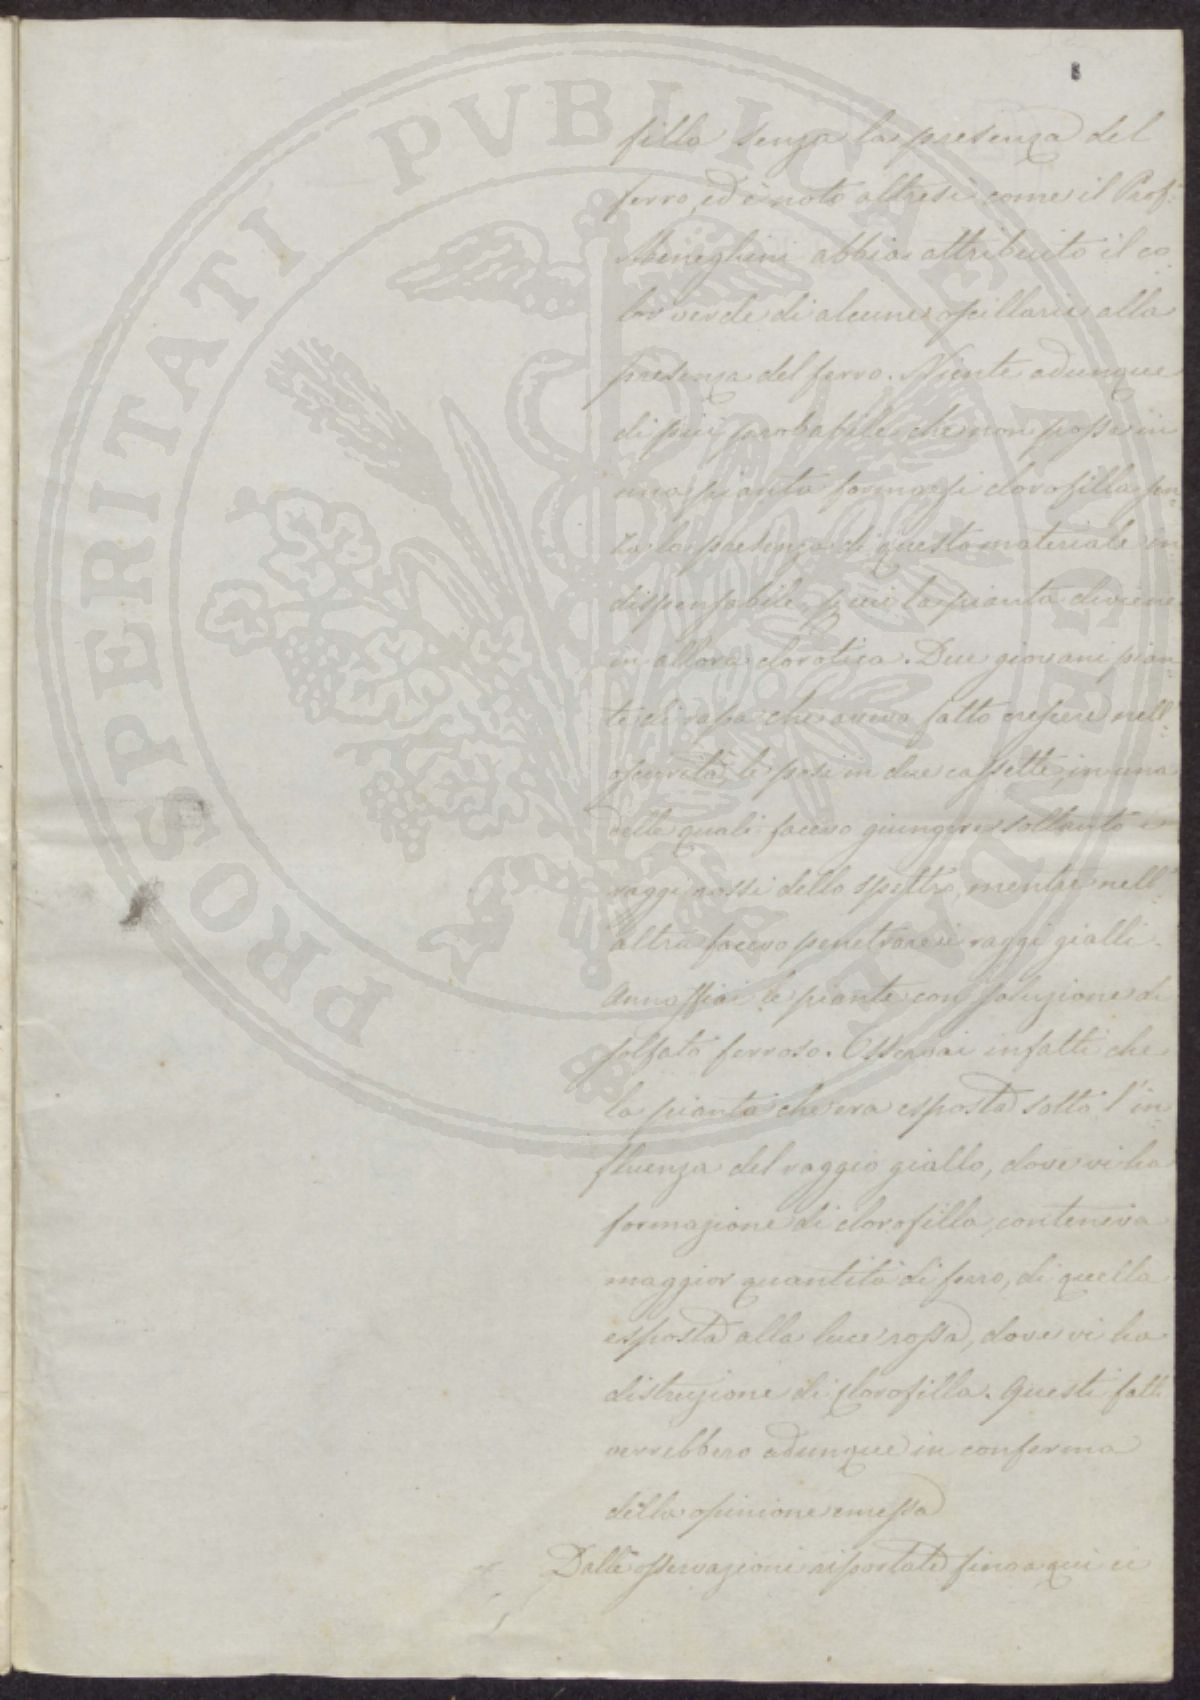 8
filla senza la presenza del
ferro, ed è noto altresì come il Prof.
Meneghini abbia attribuito il co
lor verde di alcune oscillarie alla
presenza del ferro. Niente adunque
di più probabile che non possa in
una pianta formarsi clorofilla sen
za la presenza di questo materiale in
dispensabile, e la pianta diviene
in allora clorotica. Due giovani pian
te di rapa che aveva fatto crescere nell'
oscurità, le posi in due cassette, in una
delle quali facevo giungere soltanto i
raggi rossi dello spettro, mentre nell'
altra facevo penetrare i raggi gialli.
Annaffiai le piante con soluzione di
solfato ferroso. Osservai infatti che
la pianta che era esposta sotto l'in
fluenza del raggio giallo, dove vi ha
formazione di clorofilla, conteneva
maggior quantità di ferro, di quella
esposta alla luce rossa, dove vi ha
distruzione di clorofilla. Questi fatti
verrebbero adunque in conferma
della opinione emessa
Dalle osservazioni riportate fino a qui ci
PROSPERITATI PVBLICAE AVGENDAE